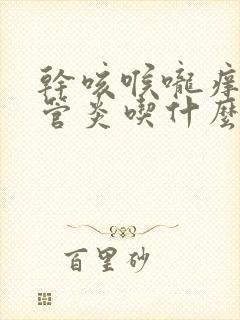 幹咳喉嚨痒
管炎喫什麼
百里砂